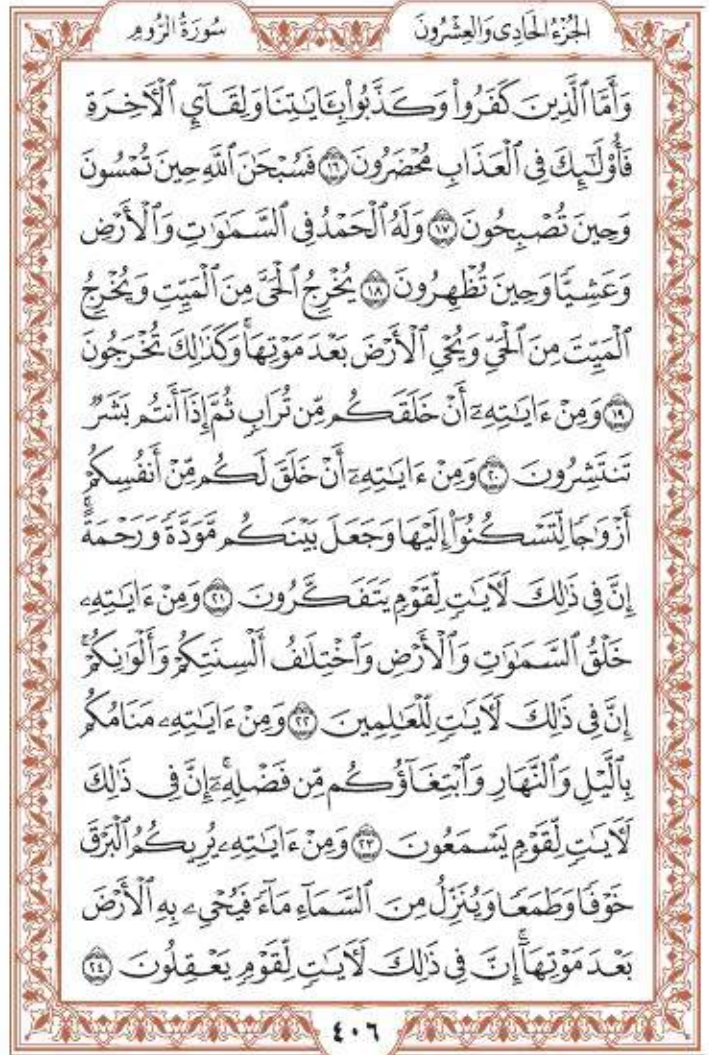 سُورَةُ الرُّومِ
الجُزْءُ الحَادِى وَالعِشْرُونَ
وَأَمَّا ٱلَّذِينَ كَفَرُوا۟ وَكَذَّبُوا۟ بِـَٔايَـٰتِنَا وَلِقَآئِ ٱلْأَخِرَةِ
فَأُو۟لَـٰٓئِكَ فِى ٱلْعَذَابِ مُحْضَرُونَ ١٦ فَسُبْحَـٰنَ ٱللَّهِ حِينَ تُمْسُونَ
وَحِينَ تُصْبِحُونَ ١٧ وَلَهُ ٱلْحَمْدُ فِى ٱلسَّمَـٰوَٰتِ وَٱلْأَرْضِ
وَعَشِيًّا وَحِينَ تُظْهِرُونَ ١٨ يُخْرِجُ ٱلْحَىَّ مِنَ ٱلْمَيِّتِ وَيُخْرِجُ
ٱلْمَيِّتَ مِنَ ٱلْحَىِّ وَيُحْىِ ٱلْأَرْضَ بَعْدَ مَوْتِهَا ۚ وَكَذَٰلِكَ تُخْرَجُونَ
١٩ وَمِنْ ءَايَـٰتِهِۦٓ أَنْ خَلَقَكُم مِّن تُرَابٍ ثُمَّ إِذَآ أَنتُم بَشَرٌ
تَنتَشِرُونَ ٢٠ وَمِنْ ءَايَـٰتِهِۦٓ أَنْ خَلَقَ لَكُم مِّنْ أَنفُسِكُمْ
أَزْوَٰجًا لِّتَسْكُنُوٓا۟ إِلَيْهَا وَجَعَلَ بَيْنَكُم مَّوَدَّةً وَرَحْمَةً ۚ
إِنَّ فِى ذَٰلِكَ لَـَٔايَـٰتٍ لِّقَوْمٍ يَتَفَكَّرُونَ ٢١ وَمِنْ ءَايَـٰتِهِۦ
خَلْقُ ٱلسَّمَـٰوَٰتِ وَٱلْأَرْضِ وَٱخْتِلَـٰفُ أَلْسِنَتِكُمْ وَأَلْوَٰنِكُمْ ۚ
إِنَّ فِى ذَٰلِكَ لَـَٔايَـٰتٍ لِّلْعَـٰلِمِينَ ٢٢ وَمِنْ ءَايَـٰتِهِۦ مَنَامُكُم
بِٱلَّيْلِ وَٱلنَّهَارِ وَٱبْتِغَآؤُكُم مِّن فَضْلِهِۦٓ ۚ إِنَّ فِى ذَٰلِكَ
لَـَٔايَـٰتٍ لِّقَوْمٍ يَسْمَعُونَ ٢٣ وَمِنْ ءَايَـٰتِهِۦ يُرِيكُمُ ٱلْبَرْقَ
خَوْفًا وَطَمَعًا وَيُنَزِّلُ مِنَ ٱلسَّمَآءِ مَآءً فَيُحْىِۦ بِهِ ٱلْأَرْضَ
بَعْدَ مَوْتِهَآ ۚ إِنَّ فِى ذَٰلِكَ لَـَٔايَـٰتٍ لِّقَوْمٍ يَعْقِلُونَ ٢٤
٤٠٦